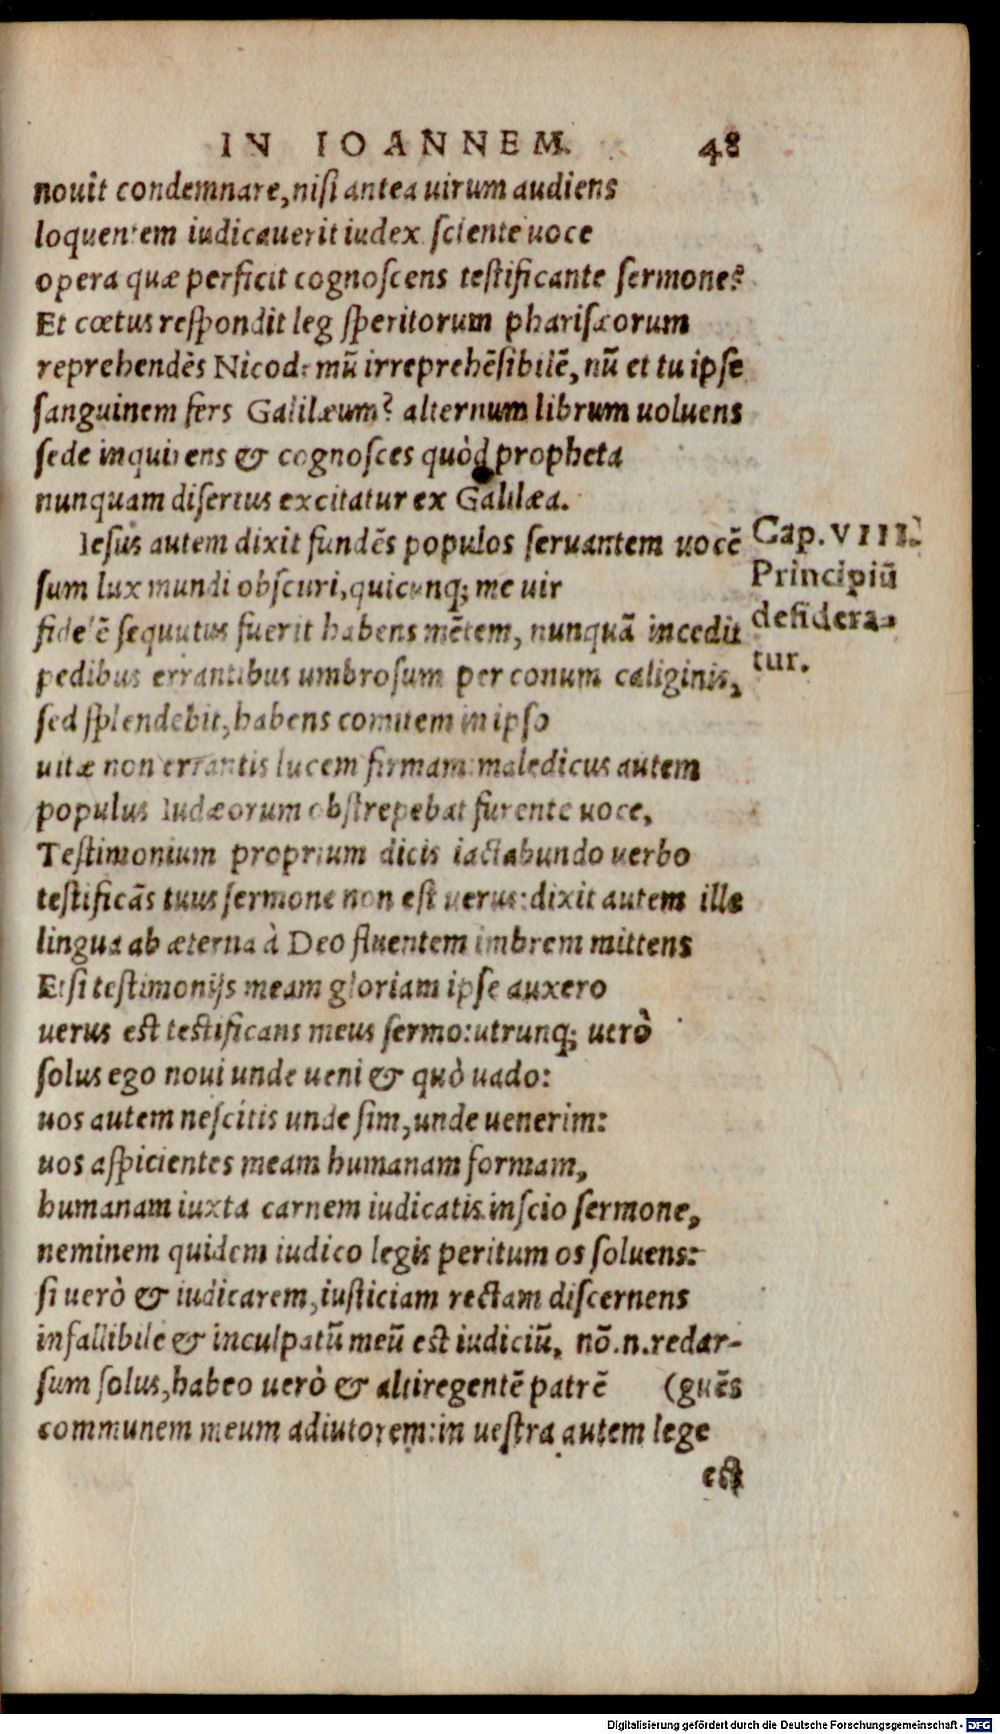 IN IOANNEM. 48
nouit condemnare, nisi antea uirum audiens
loquentem iudicauerit iudex sciente uoce
opera quæ perficit cognoscens testificante sermone?
Et cœtus respondit leg speritorum pharisæorum
reprehendēs Nicodemū irreprehēsibilē, nū et tu ipse
sanguinem fers Galilæum? alternum librum uoluens
sede inquirens & cognosces quòd propheta
nunquam disertus excitatur ex Galilæa.
Iesus autem dixit fundēs populos seruantem uocē
Cap. VIII.
Principiū
desidera-
tur.
sum lux mundi obscuri, quicunq; me uir
fidelē sequutus fuerit habens mētem, nunquā incedit
pedibus errantibus umbrosum per conum caliginis,
sed splendebit, habens comitem in ipso
uitæ non errantis lucem firmam: maledicus autem
populus Iudæorum obstrepebat furente uoce,
Testimonium proprium dicis iactabundo uerbo
testificās tuus sermone non est uerus: dixit autem ille
lingua ab æterna à Deo fluentem imbrem mittens
Etsi testimonijs meam gloriam ipse auxero
uerus est testificans meus sermo: utrunq; uerò
solus ego noui unde ueni & quò uado:
uos autem nescitis unde sim, unde uenerim:
uos aspicientes meam humanam formam,
humanam iuxta carnem iudicatis inscio sermone,
neminem quidem iudico legis peritum os soluens:
si uerò & iudicarem, iusticiam rectam discernens
infallibile & inculpatū meū est iudiciū, nō.n.redar-
sum solus, habeo uerò & altiregentē patrē (guēs
communem meum adiutorem: in uestra autem lege
est
Digitalisierung gefördert durch die Deutsche Forschungsgemeinschaft - DFG